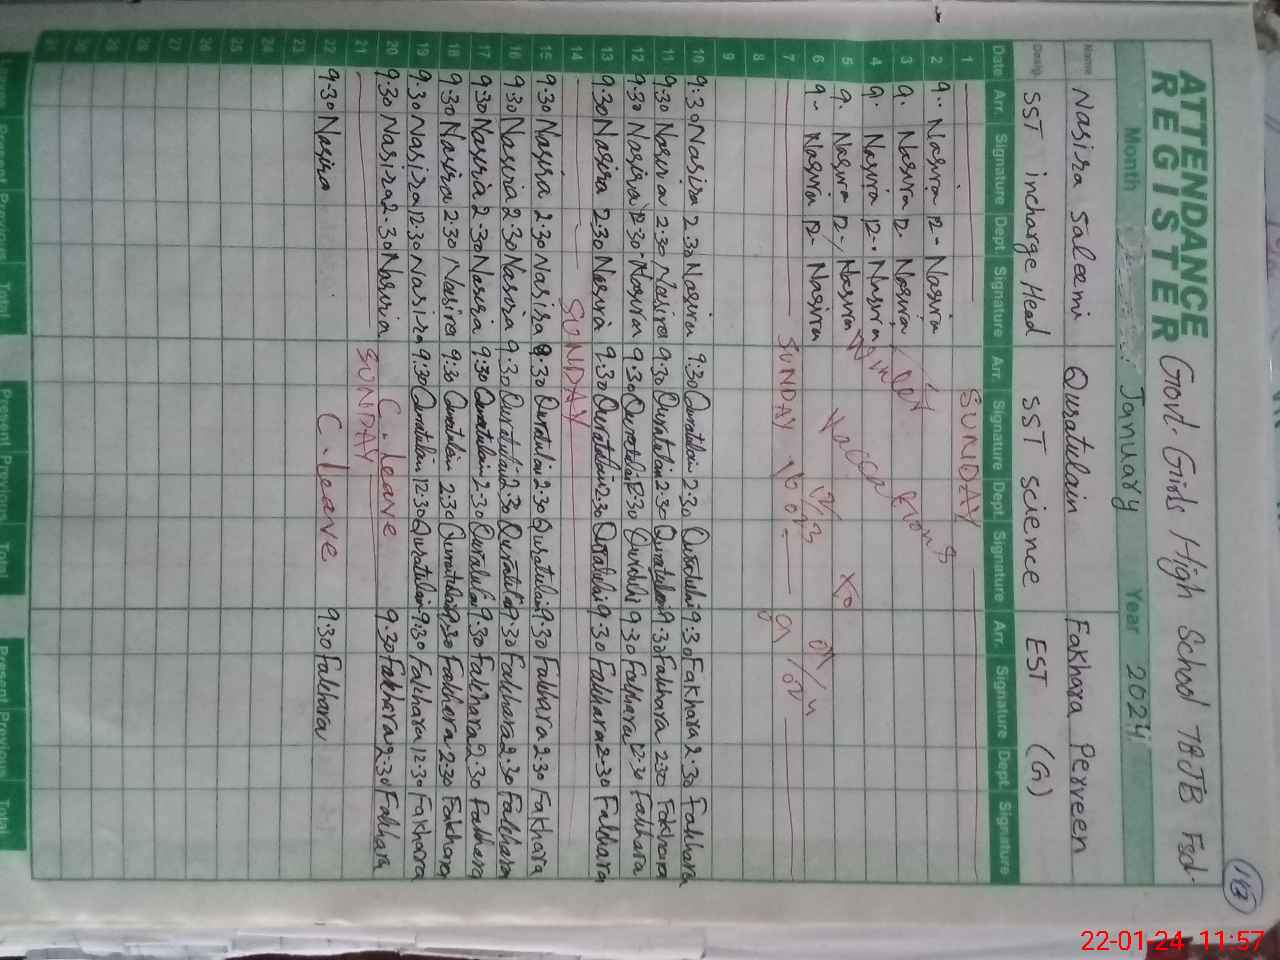 113
ATTENDANCE REGISTER Govt. Girls High School 78JB Fsd.
Month January Year 2024
Name Nasira Saleemi Quratulain Fakhara Perveen
Desig. SST incharge Head SST science EST (G)
Date Arr. Signature Dept. Signature Arr. Signature Dept. Signature Arr. Signature Dept. Signature
1 SUNDAY
2 9.. Nasira 12. Nasira
3 9. Nasira 12. Nasira
4 9. Nasira 12.. Nasira
5 9. Nasira 12. Nasira
6 9.. Nasira 12. Nasira
7 SUNDAY
8
9
10 9:30 Nasira 2.30 Nasira 9:30 Quratulain 2.30 Quratulain 9:30 Fakhara 2.30 Fakhara
11 9:30 Nasira 2.30 Nasira 9:30 Quratulain 2.30 Quratulain 9:30 Fakhara 2:30 Fakhara
12 9:30 Nasira 12:30 Nasira 9:30 Quratulain 12:30 Quratulain 9:30 Fakhara 12:30 Fakhara
13 9:30 Nasira 2.30 Nasira 9:30 Quratulain 2.30 Quratulain 9:30 Fakhara 2.30 Fakhara
14 SUNDAY
15 9.30 Nasira 2.30 Nasira 9.30 Quratulain 2.30 Quratulain 9.30 Fakhara 2.30 Fakhara
16 9.30 Nasira 2.30 Nasira 9.30 Quratulain 2.30 Quratulain 9.30 Fakhara 2.30 Fakhara
17 9.30 Nasira 2.30 Nasira 9:30 Quratulain 2.30 Quratulain 9.30 Fakhara 2.30 Fakhara
18 9.30 Nasira 2.30 Nasira 9.30 Quratulain 2.30 Quratulain 9.30 Fakhara 2.30 Fakhara
19 9.30 Nasira 12.30 Nasira 9.30 Quratulain 12.30 Quratulain 9.30 Fakhara 12.30 Fakhara
20 9.30 Nasira 2.30 Nasira C. leave 9.30 Fakhara 2.30 Fakhara
21 SUNDAY
22 9.30 Nasira C. leave 9.30 Fakhara
23
24
25
26
27
28
29
30
31
Present Previous Total Present Previous Total Present Previous Total
22-01-24 11:57